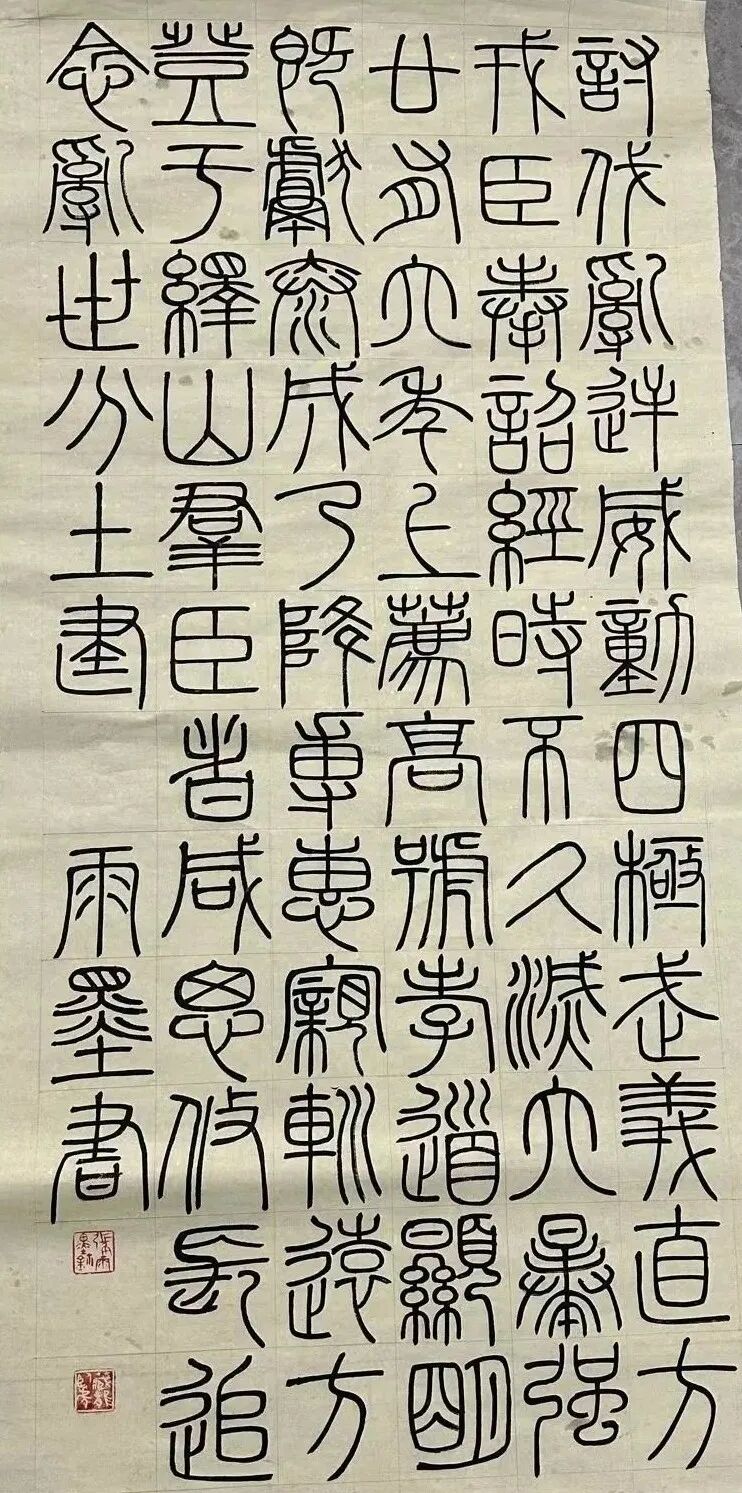 討伐亂逆威動四極武義直方
戎臣奉詔經時不久滅六暴強
廿有六年上薦高號孝道顯明
既獻泰成乃降專惠親巡遠方
登于繹山羣臣者咸思攸長追
念亂世分土建 雨墨書